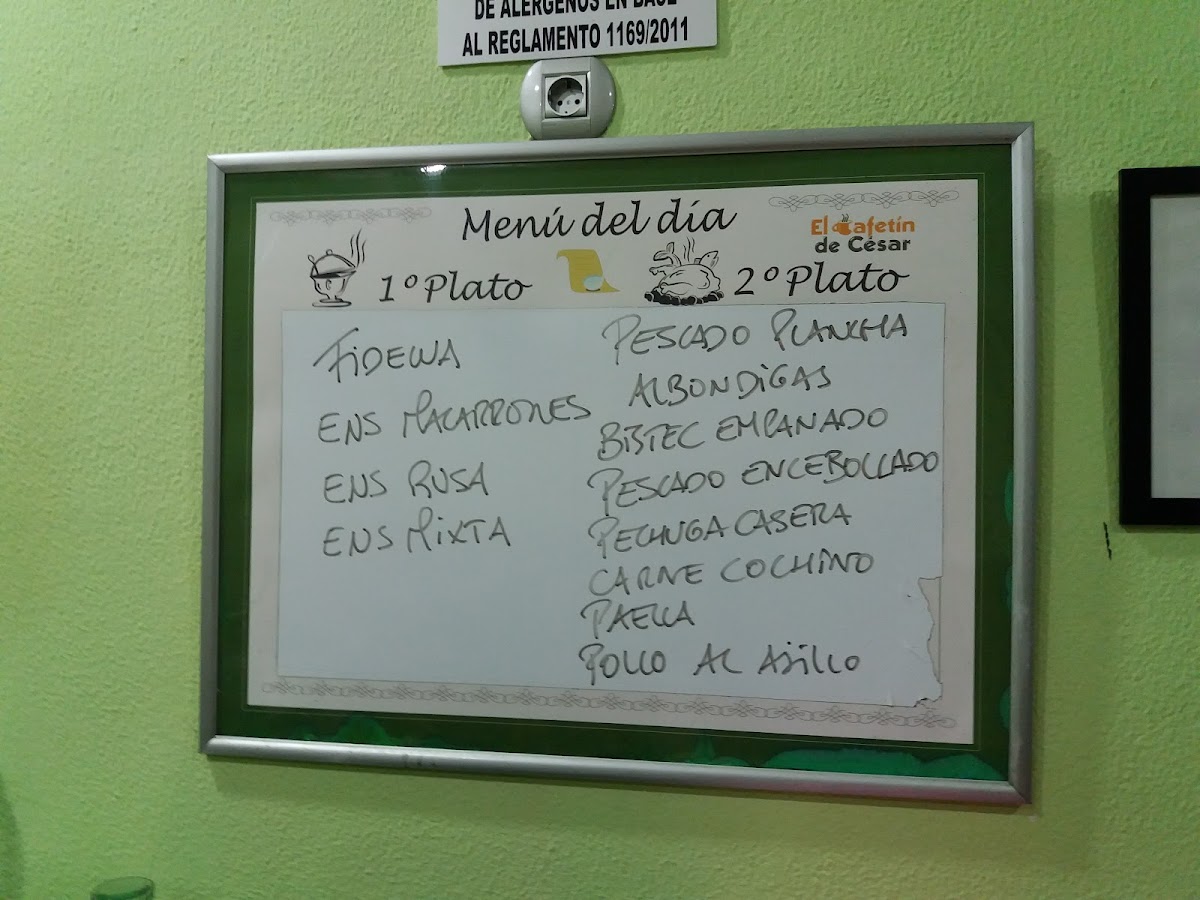 DE ALÉRGENOS EN BASE
AL REGLAMENTO 1169/2011
Menú del día
El Cafetín
de César
1º Plato
2º Plato
FIDEUA
ENS MACARRONES
ENS RUSA
ENS MIXTA
PESCADO PLANCHA
ALBONDIGAS
BISTEC EMPANADO
PESCADO ENCEBOLLADO
PECHUGA CASERA
CARNE COCHINO
PAELLA
POLLO AL AJILLO